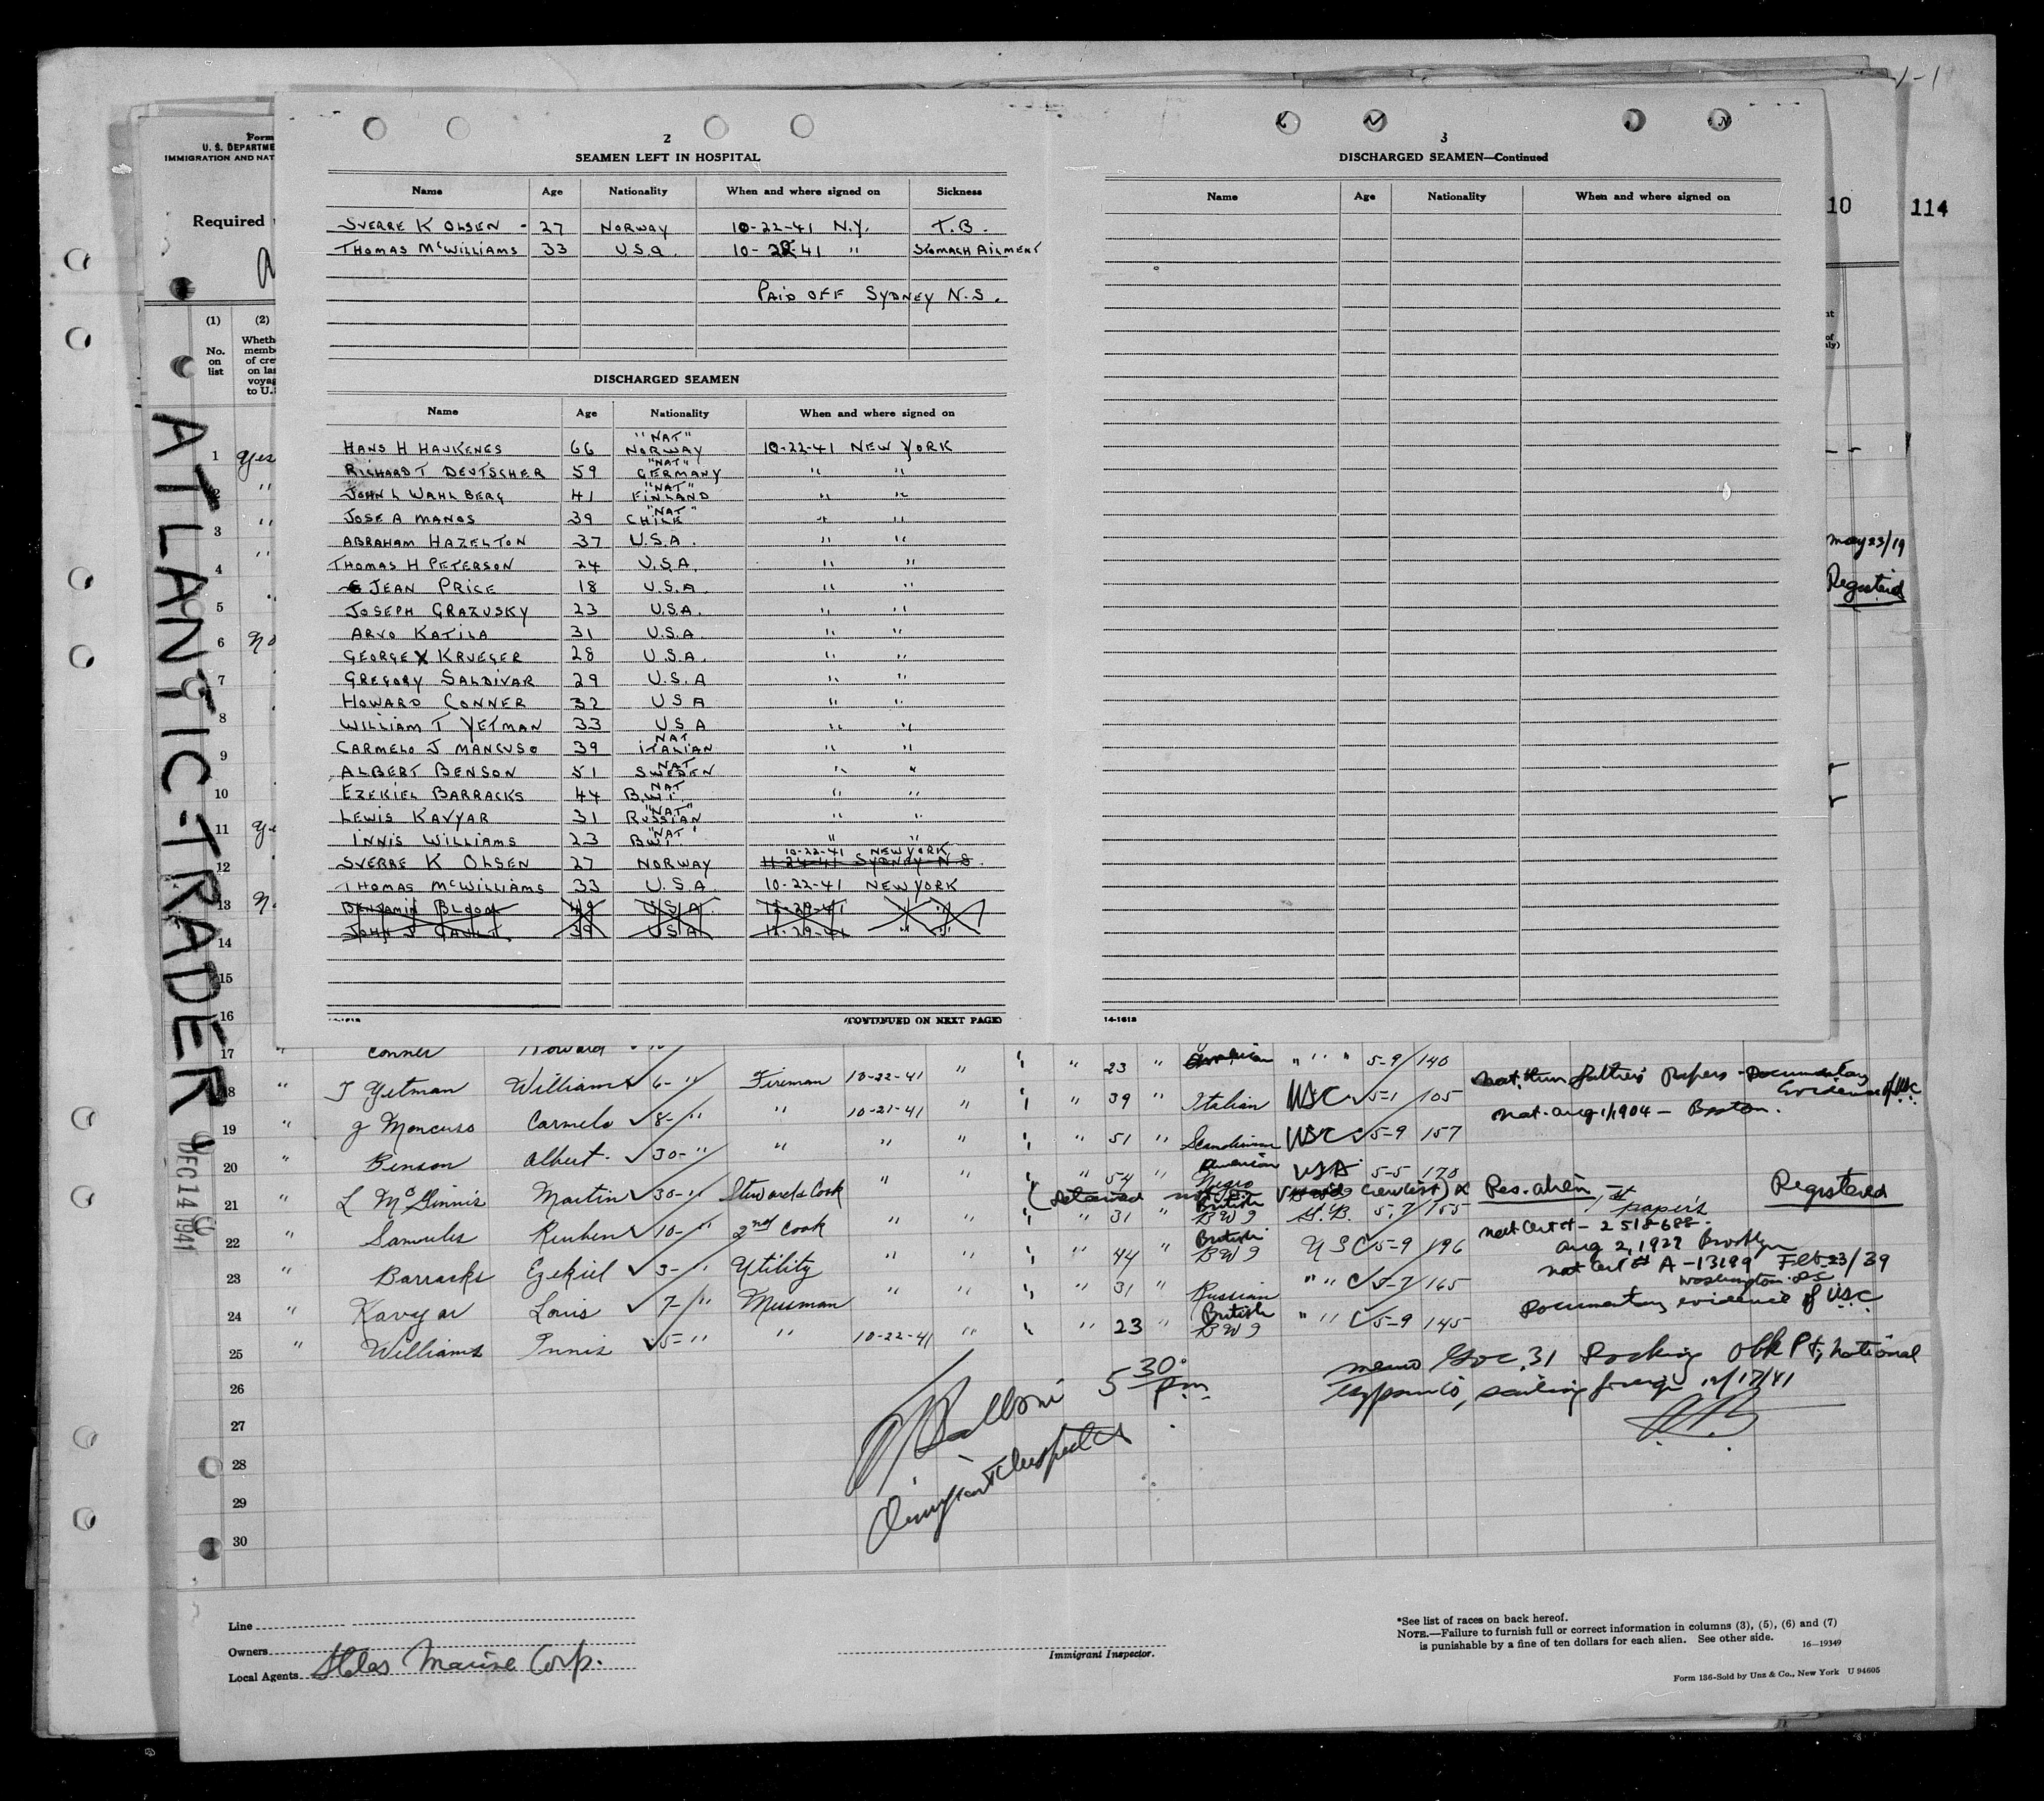 1-1
Form
U. S. DEPARTME
IMMIGRATION AND NAT
Required
10 114
2
SEAMEN LEFT IN HOSPITAL
Name Age Nationality When and where signed on Sickness
SVERRE K OLSEN - 27 NORWAY 10-22-41 N.Y. T.B.
THOMAS McWILLIAMS 33 U.S.A. 10-22-41 " STOMACH AILMENT
PAID OFF SYDNEY N.S.
DISCHARGED SEAMEN
Name Age Nationality When and where signed on
HANS H HAUKENES 66 "NAT" NORWAY 10-22-41 NEW YORK
RICHARD T DEUTSCHER 59 "NAT" GERMANY " "
JOHN L WAHLBERG 41 "NAT" FINLAND " "
JOSE A MANOS 39 "NAT" CHILE " "
ABRAHAM HAZELTON 37 U.S.A. " "
THOMAS H PETERSON 24 U.S.A. " "
JEAN PRICE 18 U.S.A. " "
JOSEPH GRAZUSKY 23 U.S.A. " "
ARVO KATILA 31 U.S.A " "
GEORGE X KRUEGER 28 U.S.A. " "
GREGORY SALDIVAR 29 U.S.A " "
HOWARD CONNER 32 U S A " "
WILLIAM T YETMAN 33 U S A " "
CARMELO J MANCUSO 39 NAT ITALIAN " "
ALBERT BENSON 51 NAT SWEDEN " "
EZEKIEL BARRACKS 44 NAT B.W.I. " "
LEWIS KAVYAR 31 "NAT" RUSSIAN " "
INNIS WILLIAMS 23 "NAT" B.W.I. " "
10-22-41 NEW YORK
SVERRE K OLSEN 27 NORWAY 11-24-41 SYDNEY N.S.
THOMAS McWILLIAMS 33 U.S.A. 10-22-41 NEW YORK
BENJAMIN BLOOD 49 U.S.A. 11-29-41 " "
JOHN J 39 U S A 11-29-41 " "
14-1618 (CONTINUED ON NEXT PAGE)
3
DISCHARGED SEAMEN—Continued
Name Age Nationality When and where signed on
14-1618
(1) (2)
No. on list
Wheth
memb
of cre
on las
voyag
to U.
1 Yes
2 "
3 "
4 "
5 "
6 No
7
8
9
10
11 Ye
12
13 N
14
15
16
May 23/19
Registered
ATLANTIC-TRADER
DEC 14 1941
17 " Conner Howard
18 " T Yetman William 6- " Fireman 10-22-41 " " 23 " American " " " 5-9 140
Nat. thru father's papers - Documentary Evidence of USC
19 " J Mancuso Carmelo 8- " " 10-21-41 " " 39 " Italian USC 5-1 105
Nat. Aug 1/1904 - Boston.
20 " Benson Albert 30- " " " " " 51 " Scandinavian USC 5-9 157
21 " L McGinnis Martin 30- " Steward & Cook " " " 54 " American Negro USA 5-5 170
Res. alien, 1st papers Registered
22 " Samules Reuben 10- " 2nd Cook " " " 31 " British BWI G.B. 5.7 155
Nat Cert # - 2518688.
Aug 2, 1927 Brooklyn
23 " Barracks Ezekiel 3- " Utility " " " 44 " British BWI U S C 5-9 196
Nat Cert # A-13199 Feb 23/39
Washington DC
24 " Kavyar Louis 7- " Messman " " " 31 " Russian " " C 5-7 165
Documentary evidence of USC
25 " Williams Innis 5- " " 10-22-41 " " 23 " British BWI " " C 5-9 145
26
27
28
29
30
5 30 pm
Immigrant Inspector
memo Docking National
sailing foreign 12/17/41
Line
Owners
Local Agents States Marine Corp.
Immigrant Inspector.
*See list of races on back hereof.
NOTE.—Failure to furnish full or correct information in columns (3), (5), (6) and (7)
is punishable by a fine of ten dollars for each alien. See other side. 16—19349
Form 136-Sold by Unz & Co., New York U 94605